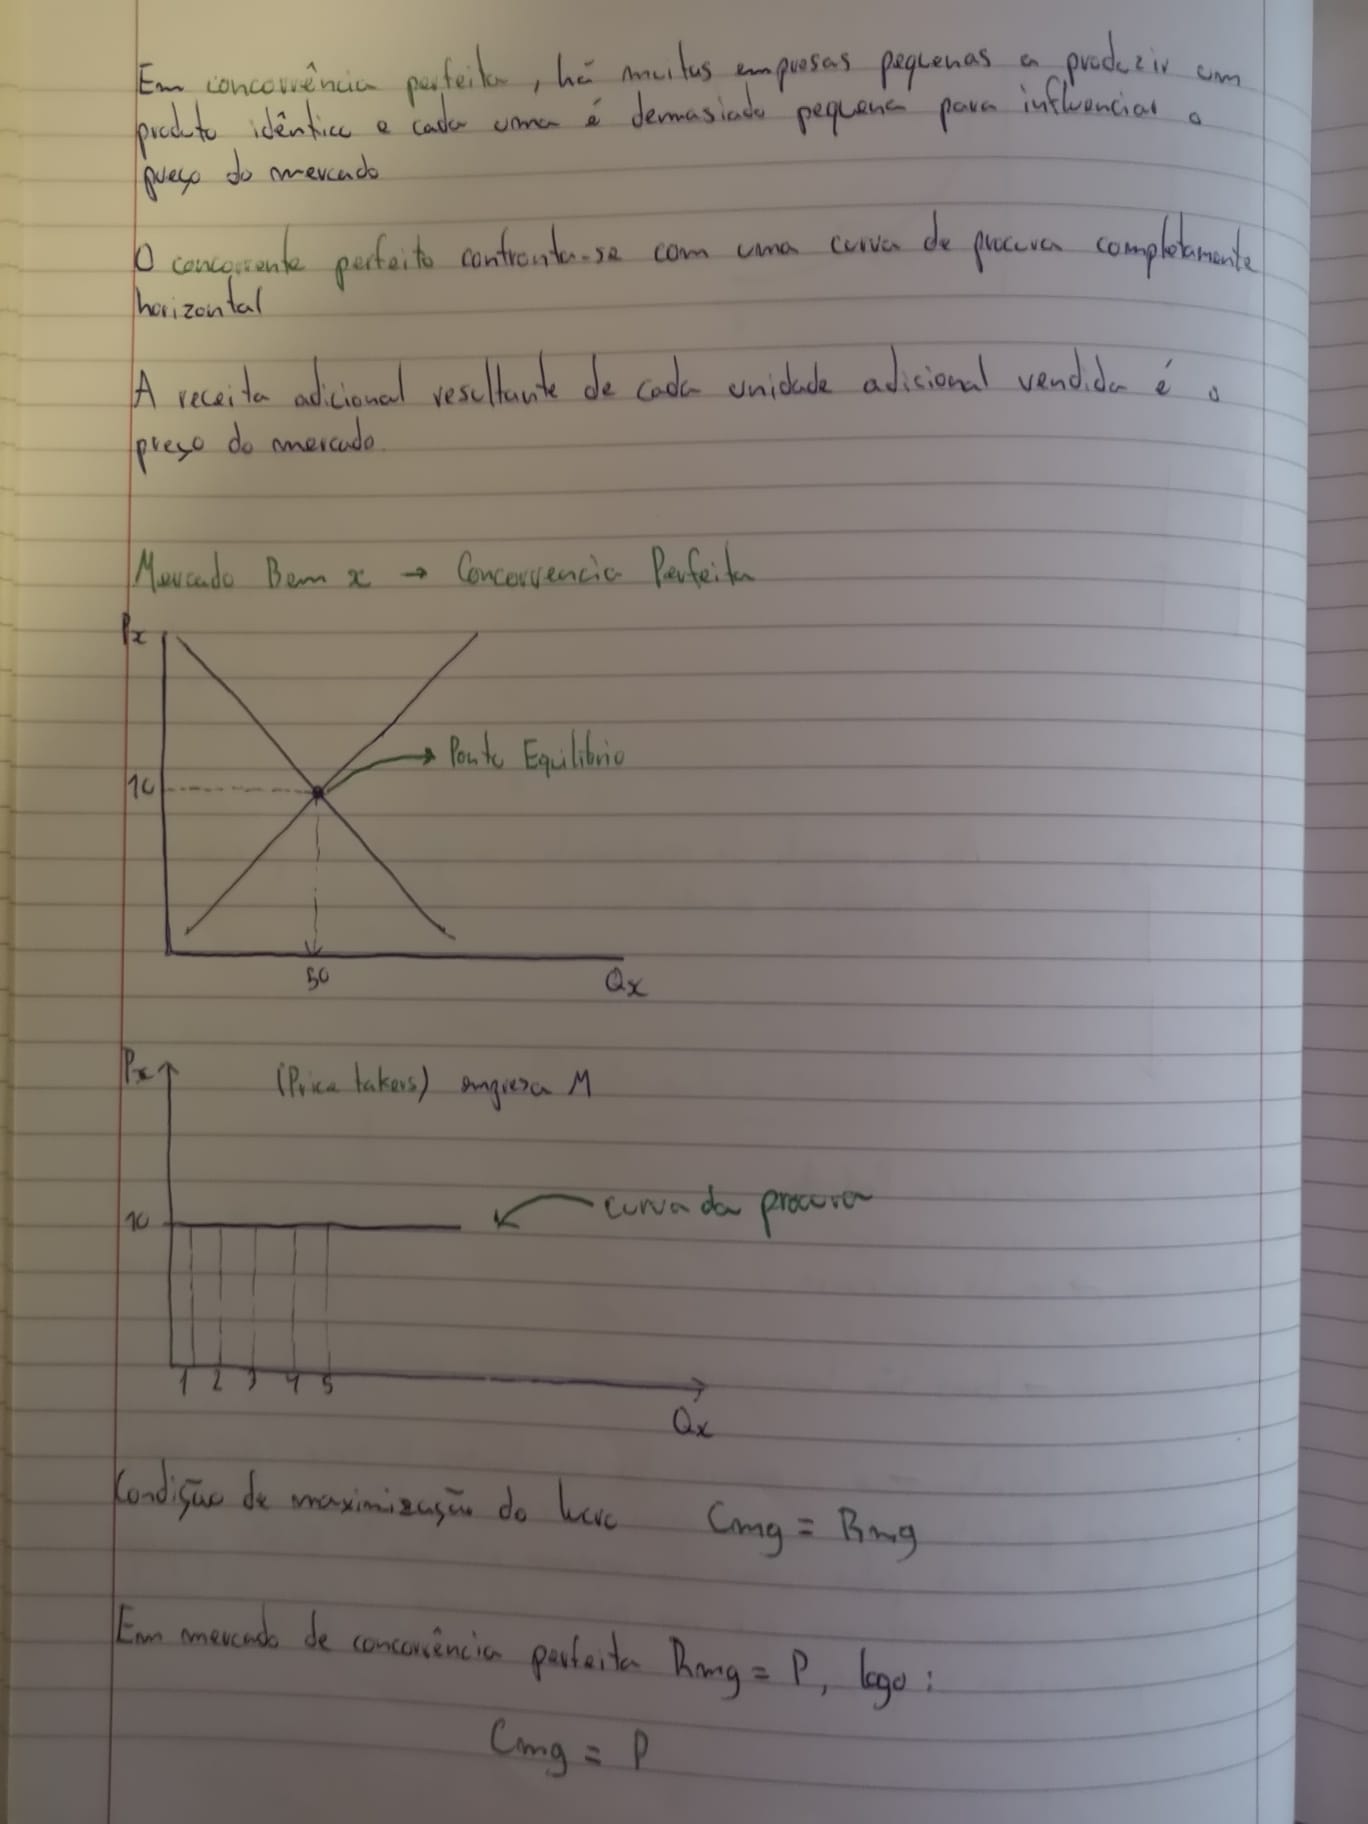 Em concorrência perfeita, há muitas empresas pequenas a produzir um
produto idêntico e cada uma é demasiado pequena para influenciar o
preço do mercado
O concorrente perfeito confronta-se com uma curva de procura completamente
horizontal
A receita adicional resultante de cada unidade adicional vendida é o
preço do mercado.
Mercado Bem x → Concorrencia Perfeita
Px
10
Ponto Equilibrio
50
Qx
Px
(Price takers) empresa M
10
curva da procura
1 2 3 4 5
Qx
Condição de maximização do lucro Cmg = Rmg
Em mercado de concorrência perfeita Rmg = P, logo:
Cmg = P